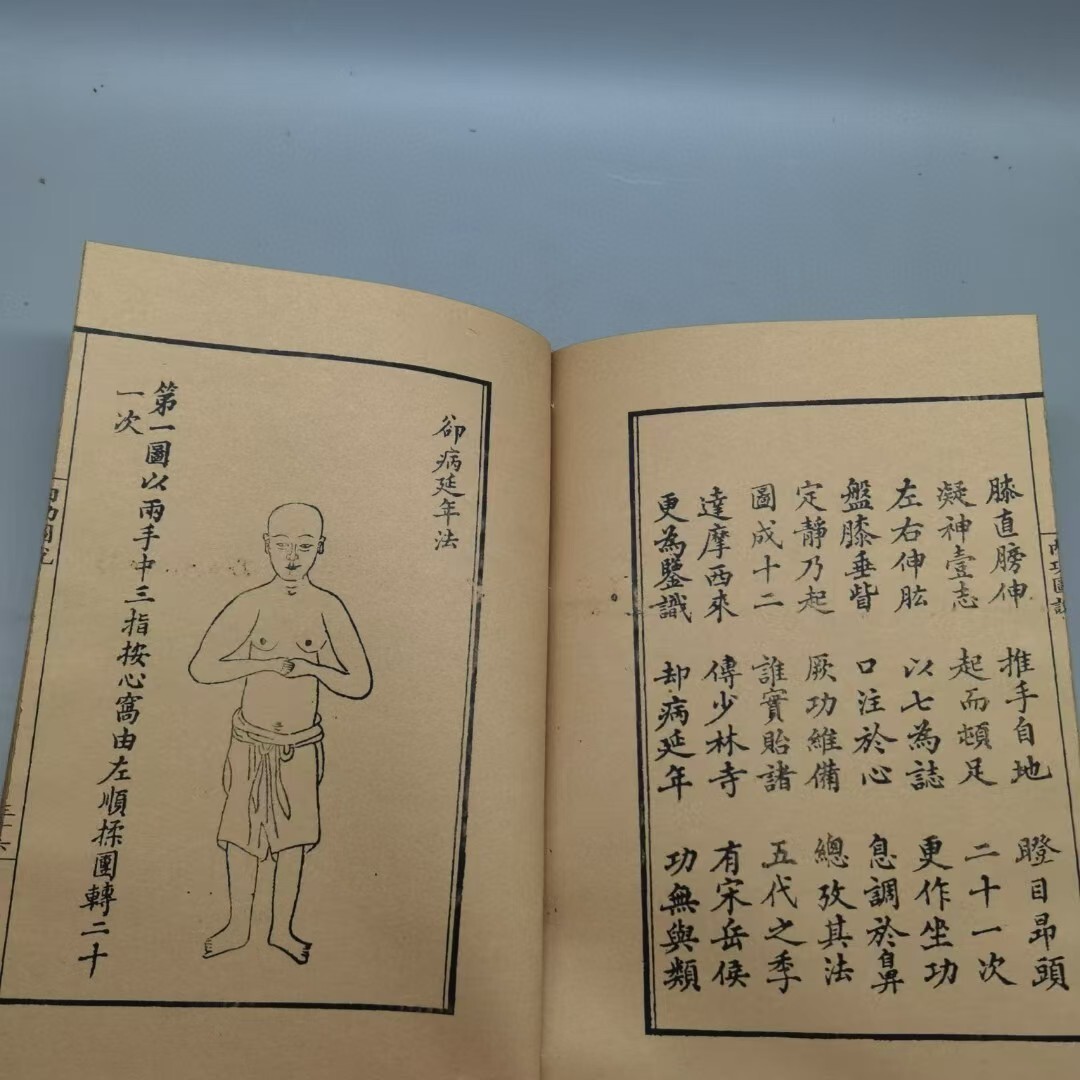 膝直膀伸 推手自地 瞪目昂頭
凝神壹志 起而頓足 二十一次
左右伸肱 以七為誌 更作坐功
盤膝垂眥 口注於心 息調於鼻
定靜乃起 厥功維備 總攷其法
圖成十二 誰實貽諸 五代之季
達摩西來 傳少林寺 有宋岳侯
更為鑒識 却病延年 功無與類
卻病延年法
第一圖以兩手中三指按心窩由左順揉團轉二十
一次